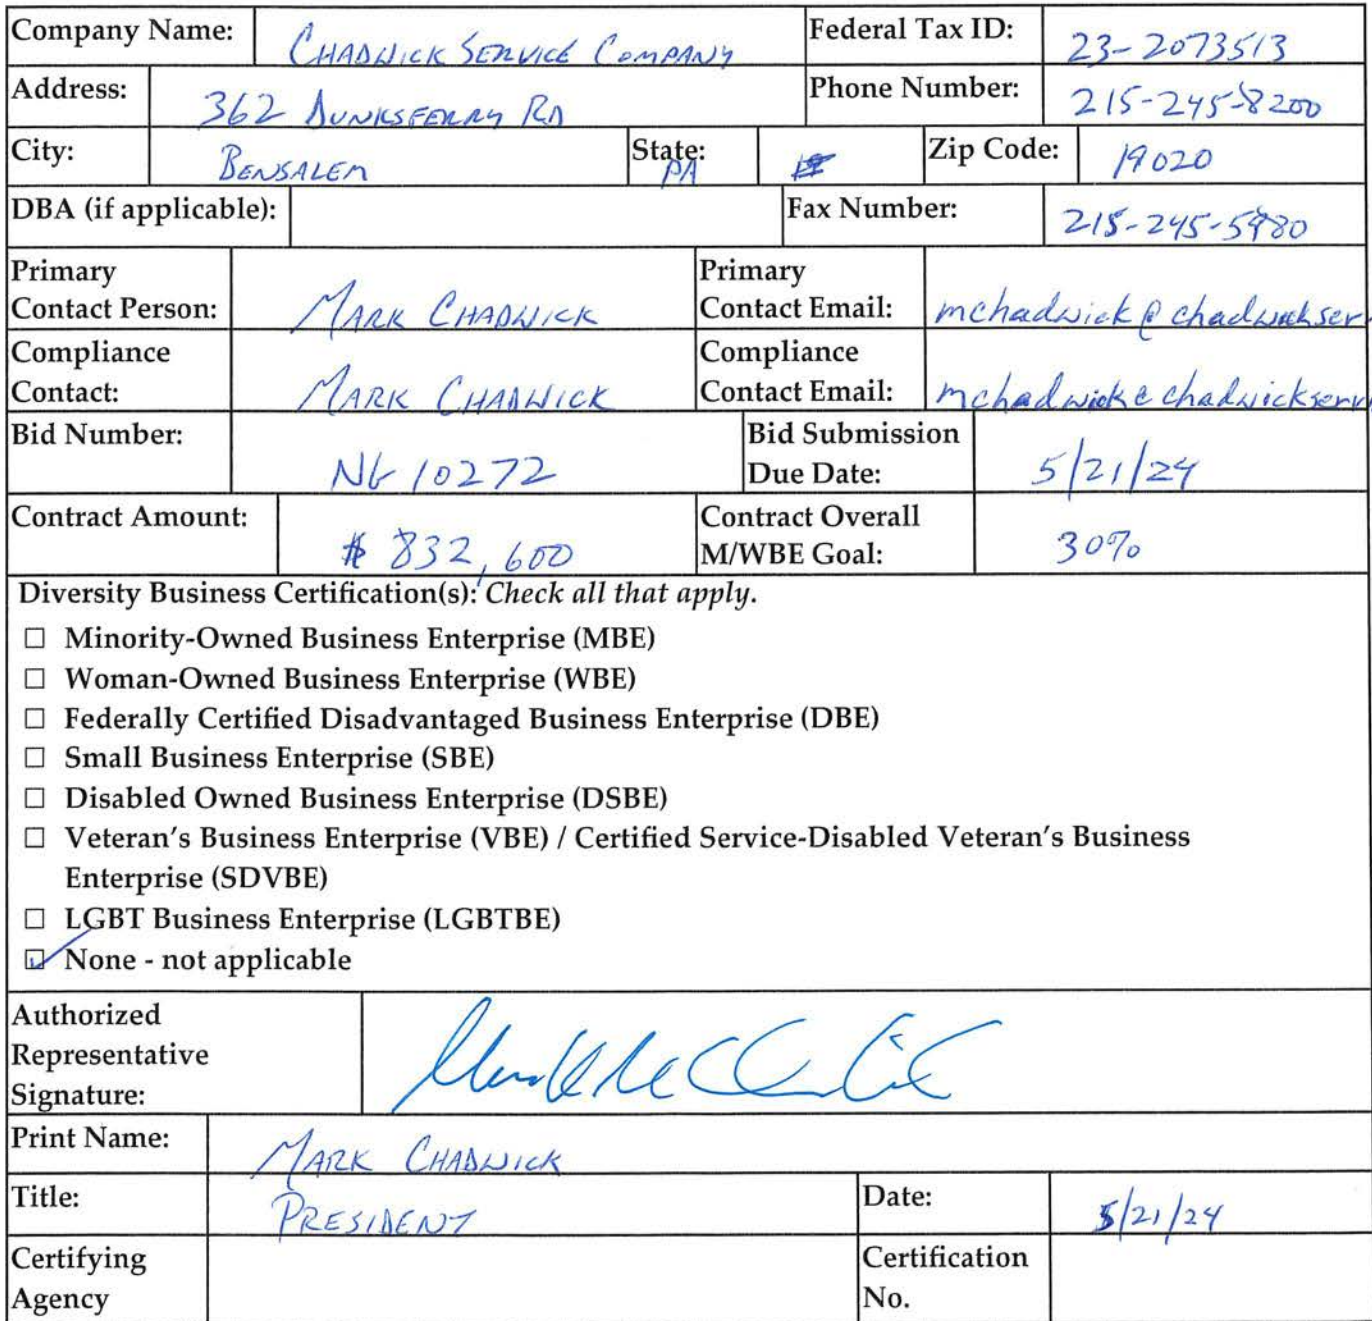 Company Name: CHADWICK SERVICE COMPANY Federal Tax ID: 23-2073513
Address: 362 DUNKSFERRY RD Phone Number: 215-245-8200
City: BENSALEM State: PA Zip Code: 19020
DBA (if applicable): Fax Number: 215-245-5980
Primary Contact Person: MARK CHADWICK Primary Contact Email: mchadwick@chadwickser
Compliance Contact: MARK CHADWICK Compliance Contact Email: mchadwick@chadwickserv
Bid Number: NG 10272 Bid Submission Due Date: 5/21/24
Contract Amount: $ 832,600 Contract Overall M/WBE Goal: 30%
Diversity Business Certification(s): Check all that apply.
☐ Minority-Owned Business Enterprise (MBE)
☐ Woman-Owned Business Enterprise (WBE)
☐ Federally Certified Disadvantaged Business Enterprise (DBE)
☐ Small Business Enterprise (SBE)
☐ Disabled Owned Business Enterprise (DSBE)
☐ Veteran's Business Enterprise (VBE) / Certified Service-Disabled Veteran's Business
Enterprise (SDVBE)
☐ LGBT Business Enterprise (LGBTBE)
☑ None - not applicable
Authorized
Representative
Signature:
Print Name: MARK CHADWICK
Title: PRESIDENT Date: 5/21/24
Certifying Agency Certification No.